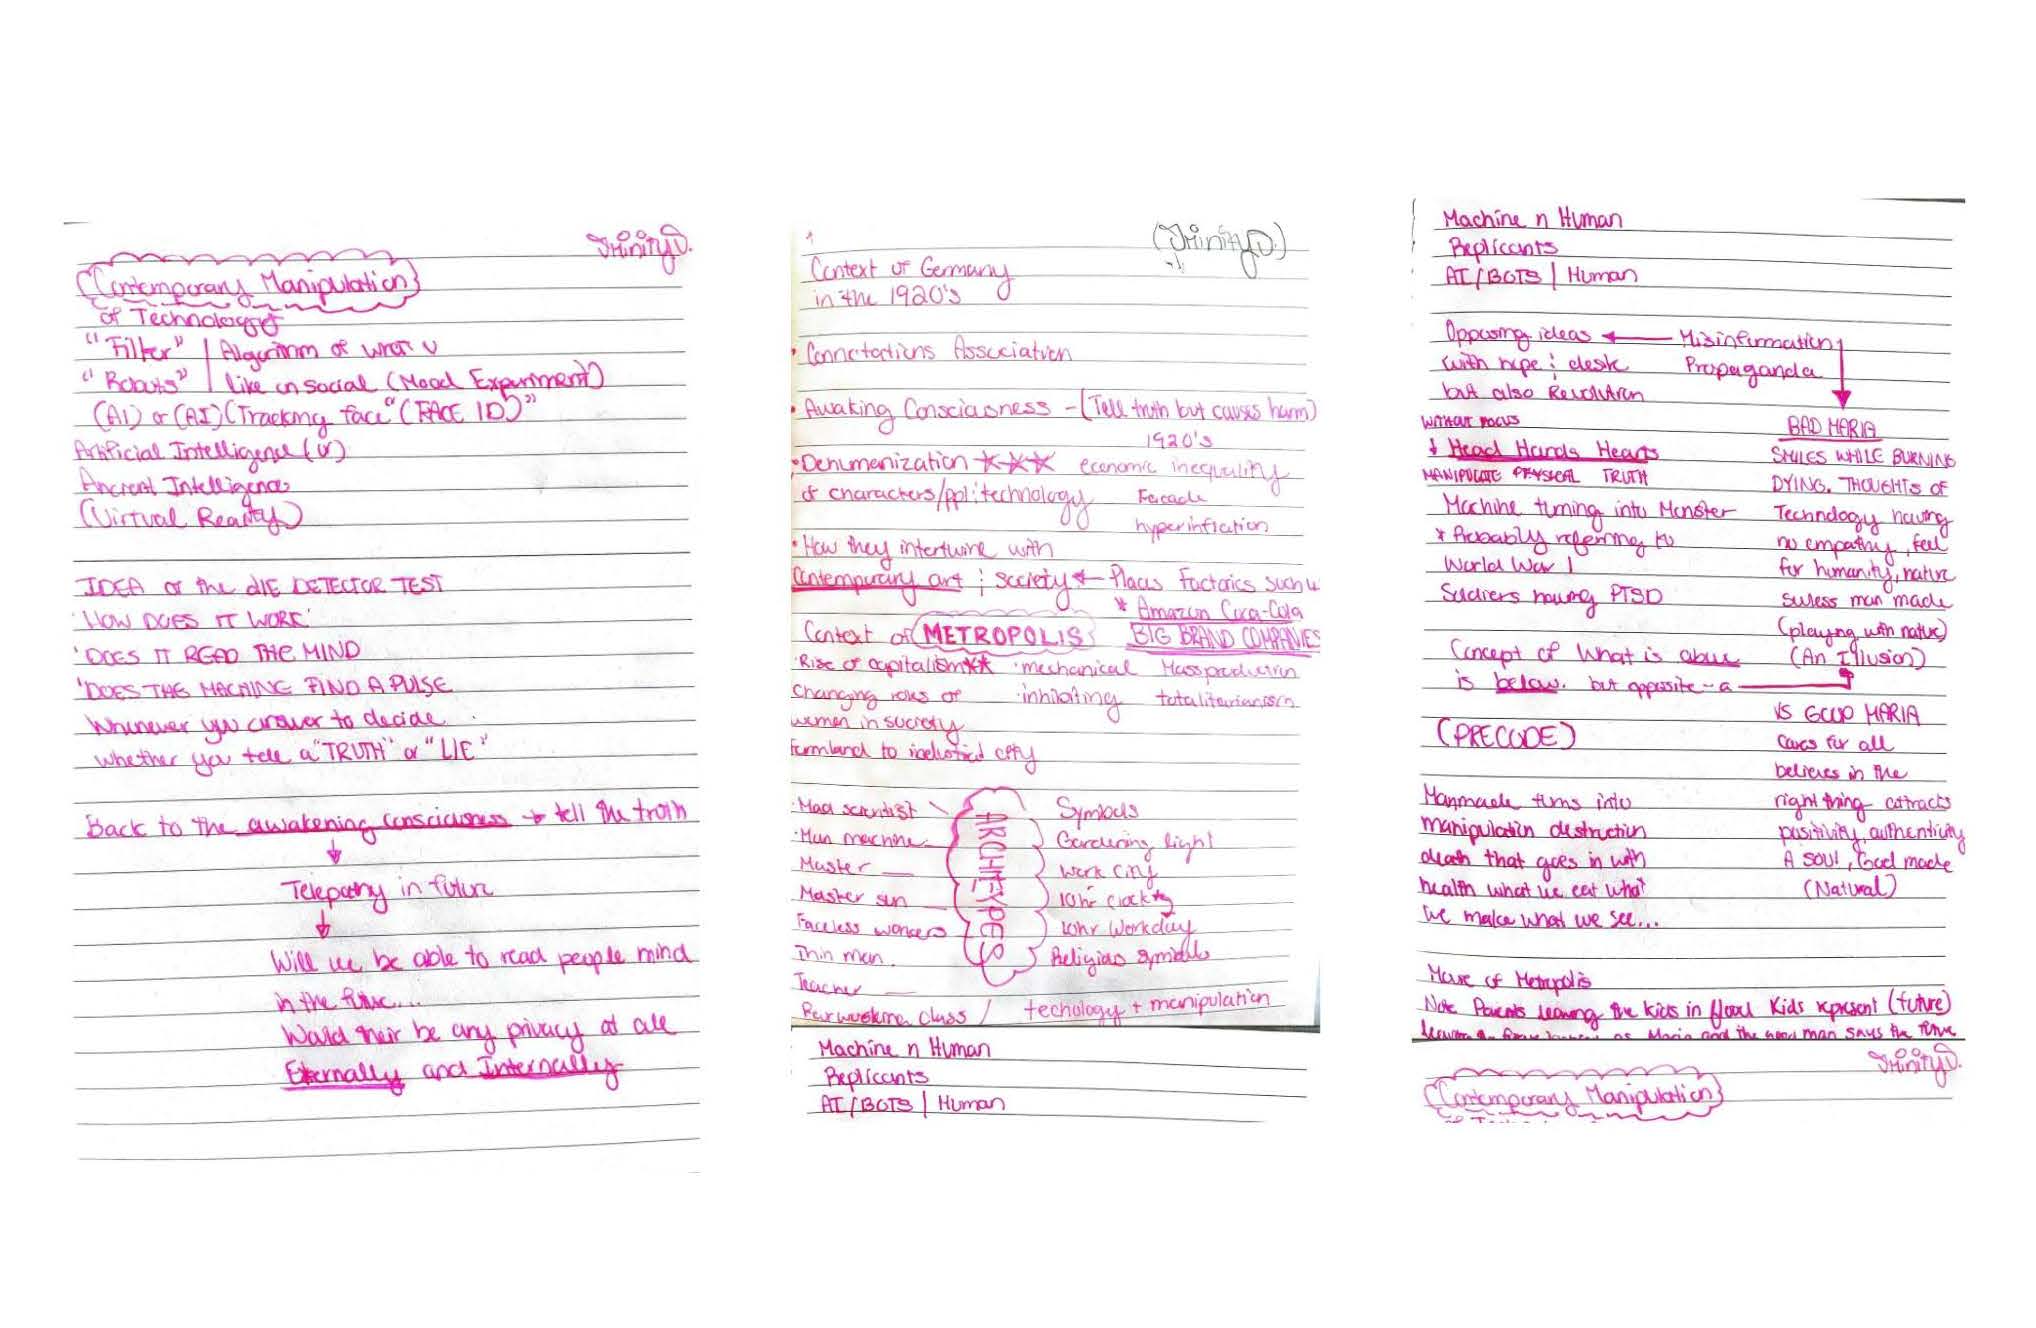 Trinity D.
Contemporary Manipulation
of Technology
"Filter" | Algorithm of what u
"Robots" | like on social (Mood Experiment)
(AI) or (AI) (Tracking face "(FACE ID)"
Artificial Intelligence (or)
Ancient Intelligence
(Virtual Reality)
IDEA of the LIE DETECTOR TEST
'HOW DOES IT WORK'
'DOES IT READ THE MIND
'DOES THE MACHINE FIND A PULSE
Whenever you answer to decide
whether you tell a "TRUTH" or "LIE"
Back to the awakening consciousness → tell the truth
Telepathy in future
Will we be able to read people mind
in the future...
Would their be any privacy at all
Externally and Internally
(Trinity D.)
Context of Germany
in the 1920's
• Connotations Association
• Awaking Consciousness - (Tell truth but causes harm)
1920's
• Dehumanization *** economic inequality
of characters/ppl: technology Facade
hyperinflation
• How they intertwine with
Contemporary art ; society ← Places Factories such
* Amazon Coca-Cola
Context of METROPOLIS BIG BRAND COMPANIES
• Rise of capitalism ** • mechanical Mass production
Changing roles of • inhibiting totalitarianism
women in society
Farmland to city
• Mad scientist \ ARCHETYPES Symbols
• Man machine Gardening light
Master Work City
Master son 10hr clock
Faceless workers 10hr Workday
Thin man. Religios symbols
Teacher
working class / techology + manipulation
Machine n Human
Replicants
AI/BOTS | Human
Machine n Human
Replicants
AI/BOTS | Human
Opposing ideas ← Misinformation
with hope ; Propaganda
but also Revolution
WITHOUT FOCUS BAD MARIA
↓ Head Hands Hearts SMILES WHILE BURNING
MANIPULATE PHYSICAL TRUTH DYING. THOUGHTS OF
Machine turning into Monster Technology having
* Probably referring to no empathy, feel
World War 1 for humanity, nature
Soldiers having PTSD man made
(playing with nature)
Concept of What is above (An Illusion)
is below. but opposite - a
VS GOOD MARIA
(PRECODE) Cares for all
believes in the
Manmade turns into right thing attracts
manipulation destruction positivity, authenticity
death that goes in with A SOUl, God made
health what we eat what (Natural)
we make what we see...
of Metropolis
Note Parents leaving the kids in flood Kids represent (future)
as Maria and the man says the future
Trinity D.
Contemporary Manipulation